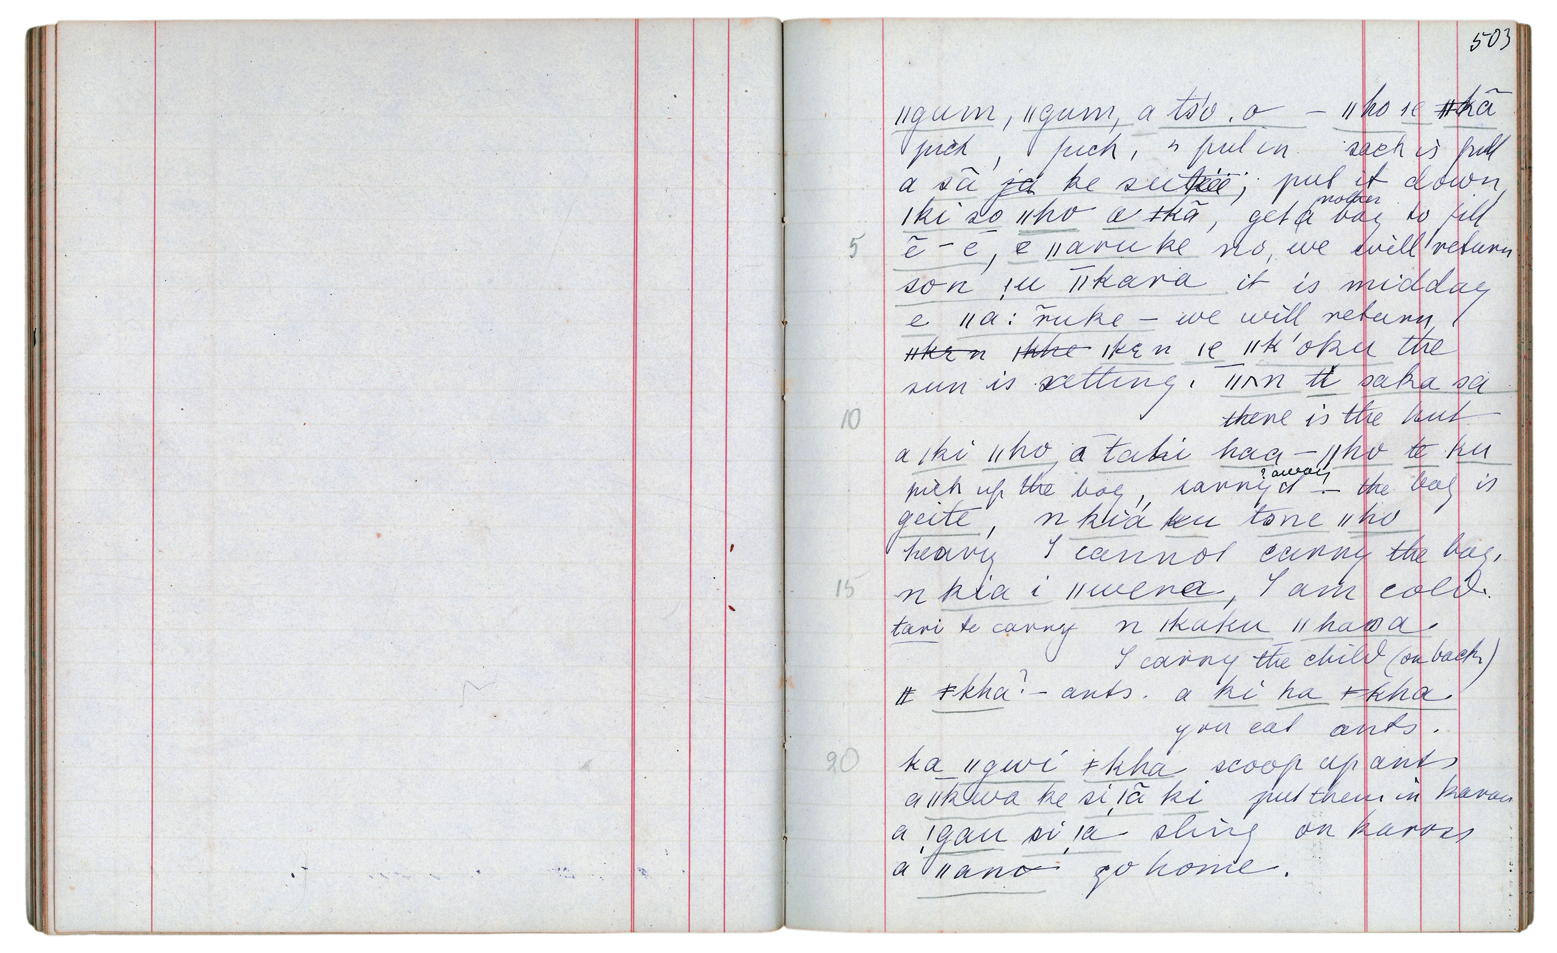 503
ǁgum, ǁgum, a tso. o – ǁho ie ǂkã
pick, pick, & put in sack is full
a sā ja ke sutëë; put it down,
ǀki so ǁho a ǂkã, get a another bag to fill
5 ē – ē, e ǁaruke no, we will return
son ǃu ǁkara it is midday
e ǁa: r̃uke – we will return,
ǁkɛn ǀkhe ǀkɛn ǀe ǁk'oku the
sun is setting. ǁʌn ti saka sa
10 there is the hut
a ǀki ǁho, a tabi haa – ǁho te ku
pick up the bag, carry it ? away – the bag is
geite, n kiá ku tone ǁho
heavy I cannot carry the bag.
15 n kia i ǁwera, I am cold.
tari to carry n ǀkaku ǁhawa.
I carry the child (on back)
ǂ ǂkha? – ants. a ki ha ǂkha.
you eat ants.
20 ka ǁgwí ǂkha scoop up ants
a ǁkwa ke si, ǀā ki put them in kaross
a ǃgau si ǀa sling on kaross
a ǁano go home.